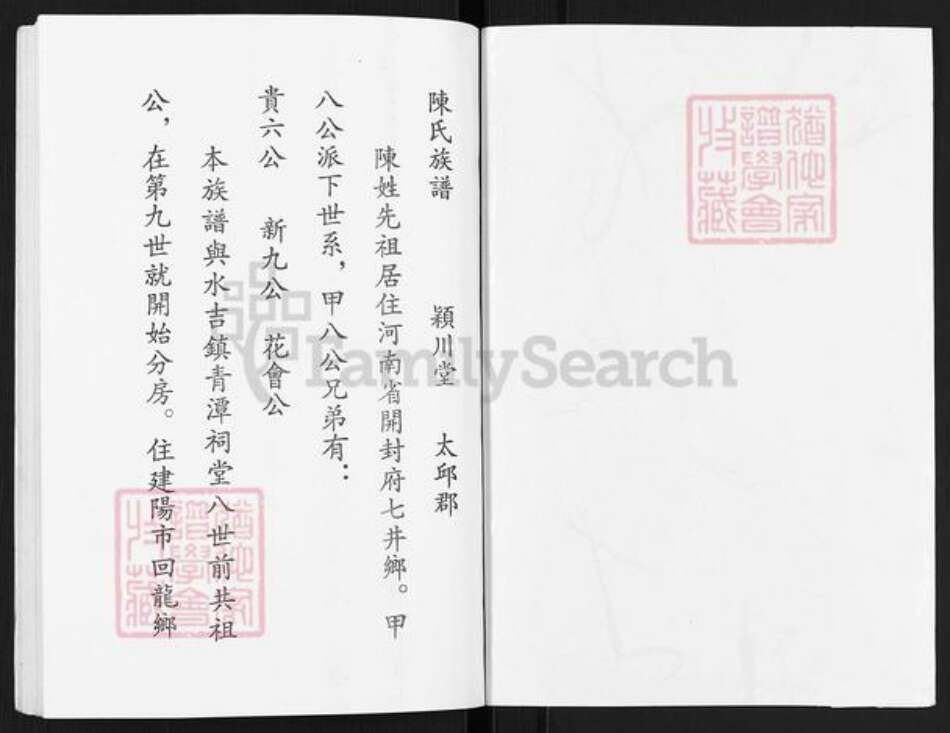 猶他家
譜學會
收藏
陳氏族譜 潁川堂 太邱郡
陳姓先祖居住河南省開封府七井鄉。甲
八公派下世系，甲八公兄弟有：
貴六公 新九公 花會公
本族譜與水吉鎮青潭祠堂八世前共祖
公，在第九世就開始分房。住建陽市回龍鄉
猶他家
譜學會
收藏
FamilySearch